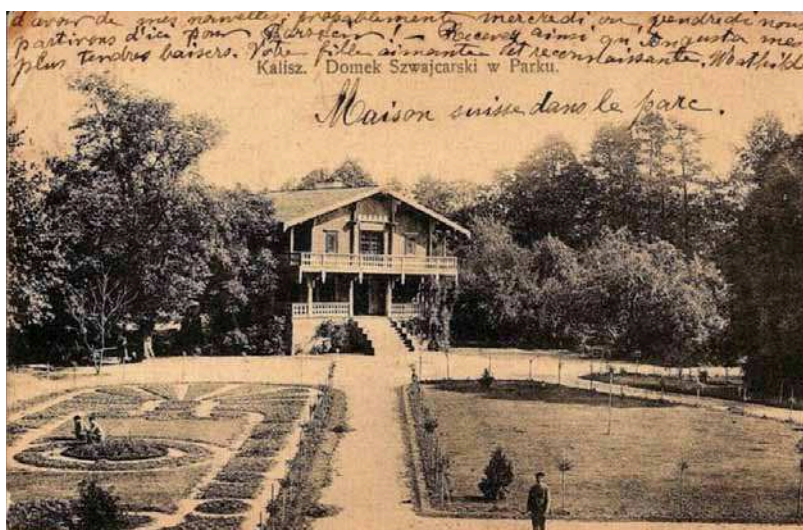 d'avoir de mes nouvelles, probablement mercredi ou vendredi nous
partirons d'ici pour ! – Recevez ainsi qu'Augusta mes
plus tendres baisers. Votre fille aimante et reconnaissante,
Kalisz. Domek Szwajcarski w Parku.
Maison suisse dans le parc.